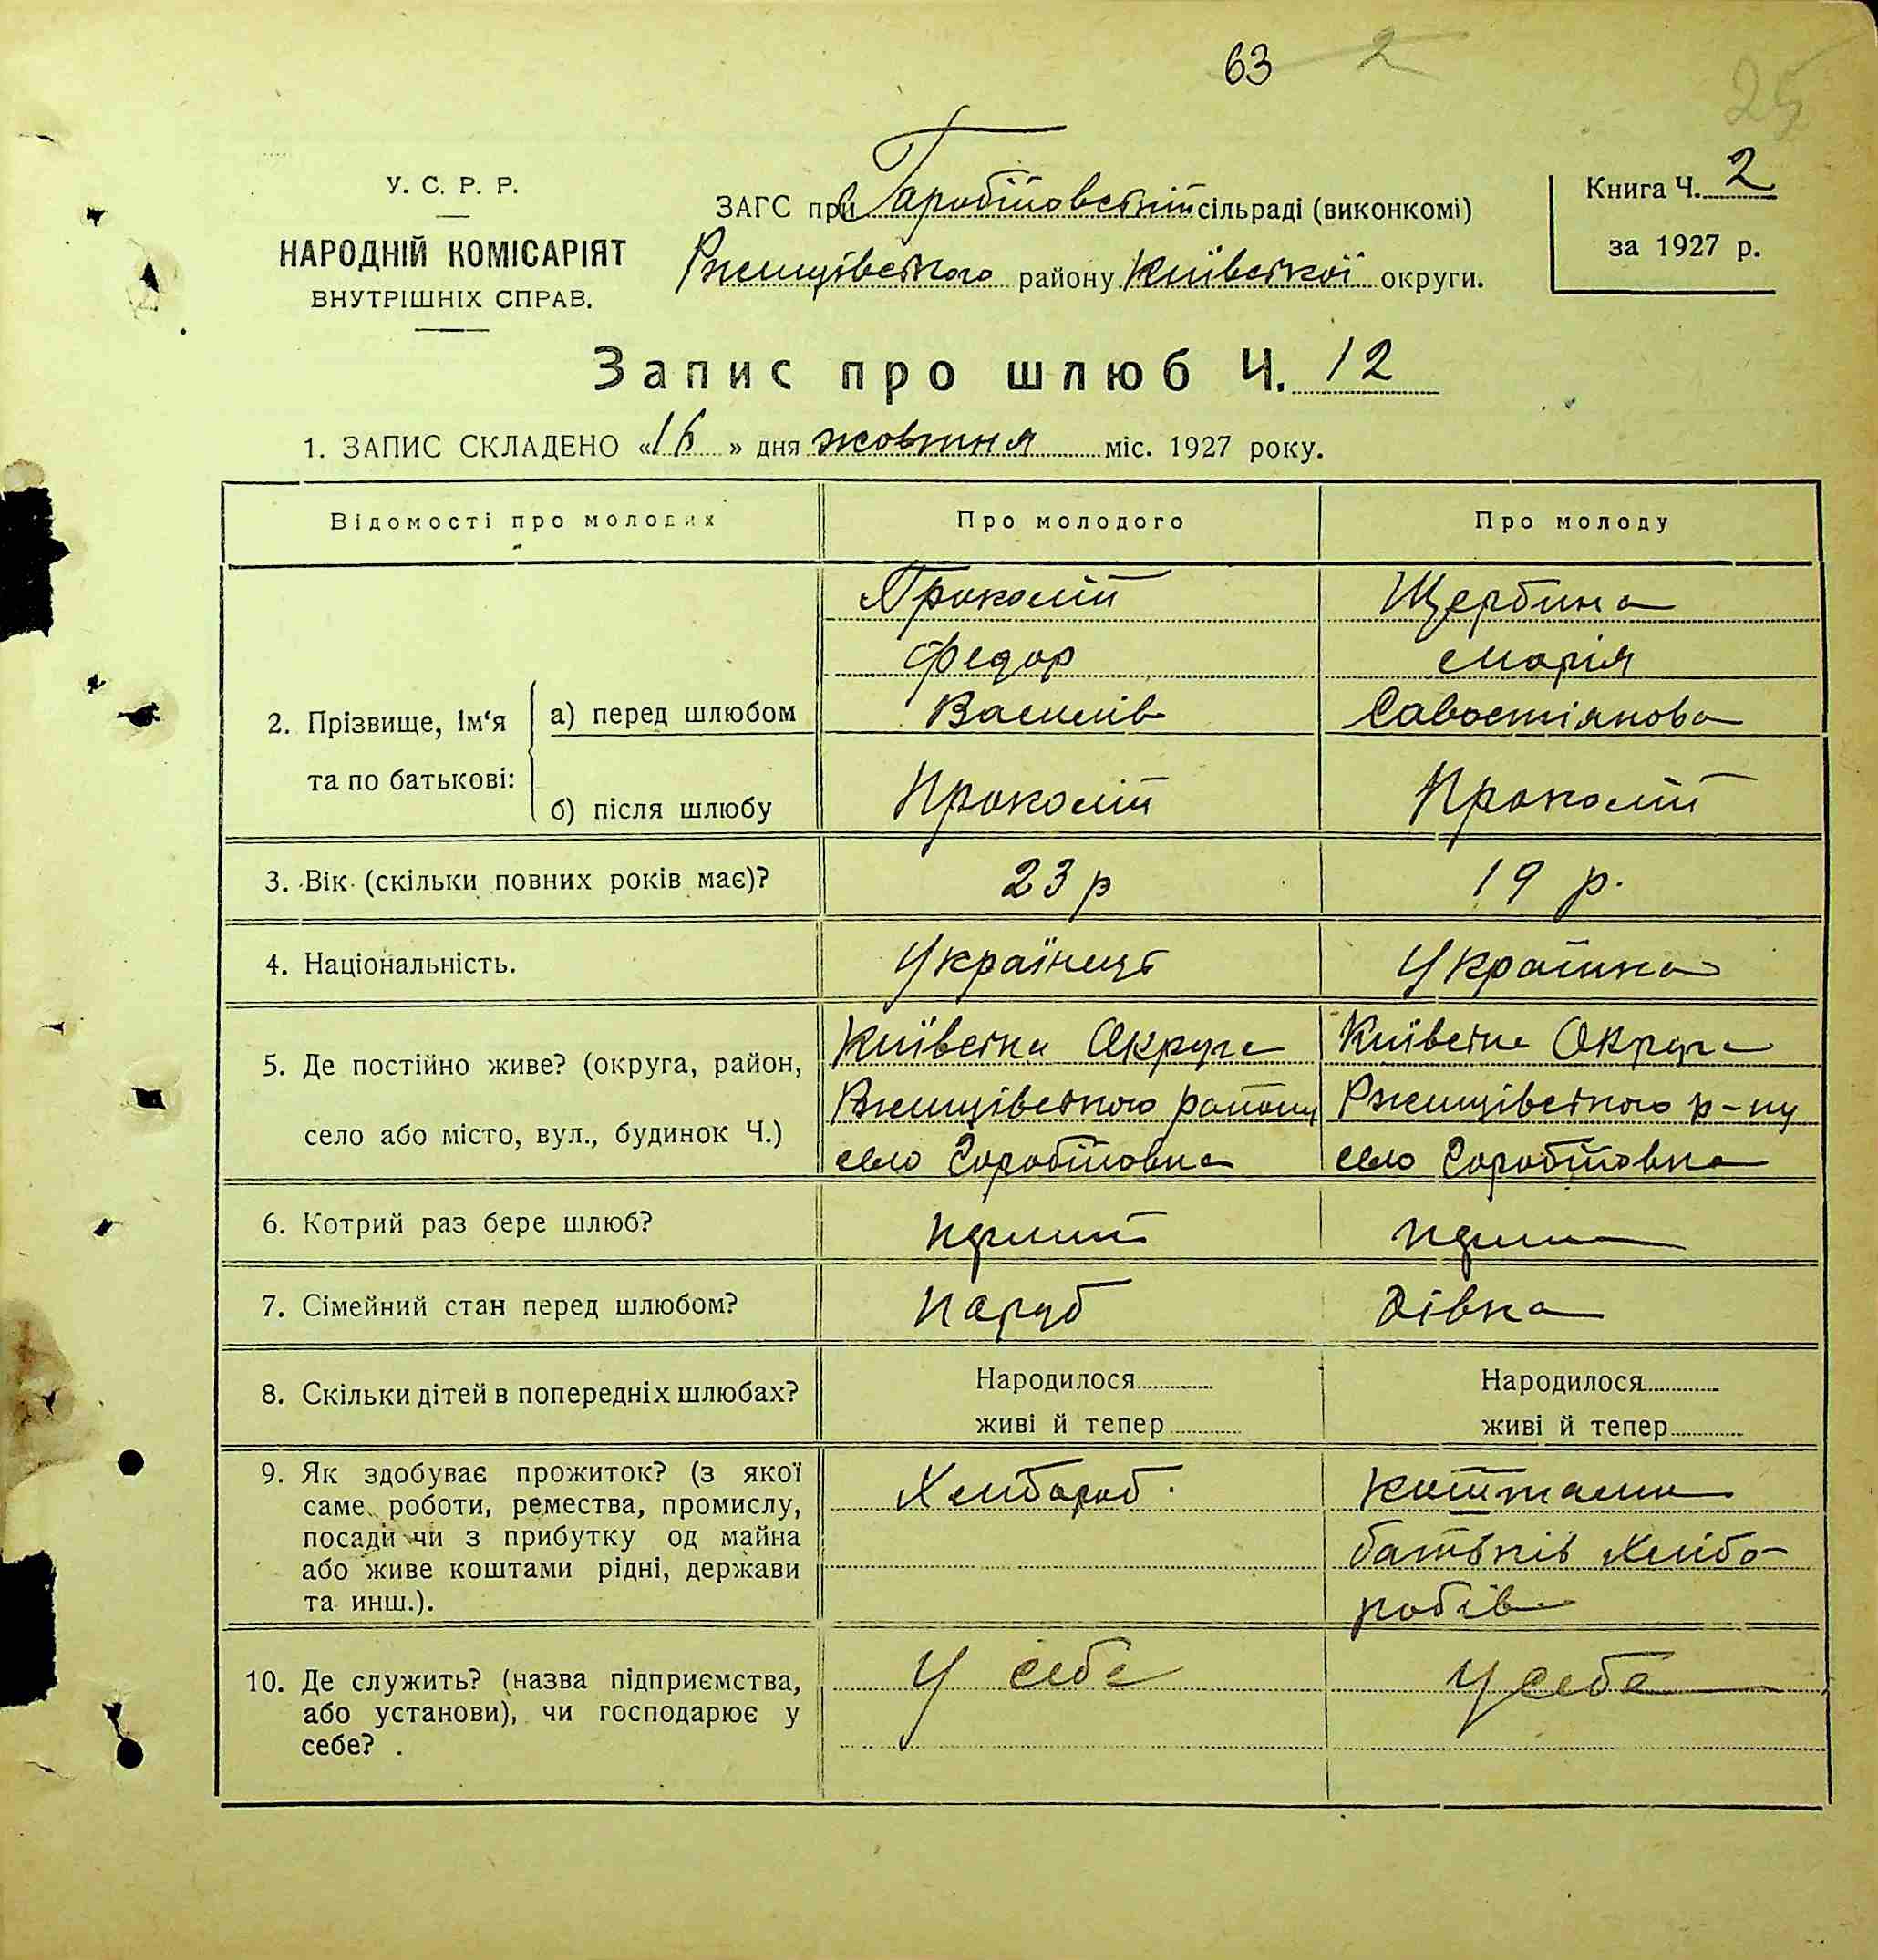 63 2
25
У. С. Р. Р.
НАРОДНІЙ КОМІСАРІЯТ
ВНУТРІШНІХ СПРАВ.
ЗАГС при сільраді (виконкомі)
Ржищівського району Київської округи.
Книга Ч. 2
за 1927 р.
Запис про шлюб Ч. 12
1. ЗАПИС СКЛАДЕНО «16» дня жовтня міс. 1927 року.
Відомості про молодих
Про молодого
Про молоду
2. Прізвище, ім‘я та по батькові:
а) перед шлюбом
Федор
Василів
Щербина
Марія
Савостіянова
б) після шлюбу
3. Вік (скільки повних років має)?
23 р
19 р.
4. Національність.
Українець
Українка
5. Де постійно живе? (округа, район,
село або місто, вул., будинок Ч.)
Київська Округа
Ржищівського району
село
Київська Округа
Ржищівського р-ну
село
6. Котрий раз бере шлюб?
7. Сімейний стан перед шлюбом?
Паруб
Дівка
8. Скільки дітей в попередніх шлюбах?
Народилося
живі й тепер
Народилося
живі й тепер
9. Як здобуває прожиток? (з якої
саме роботи, ремества, промислу,
посади чи з прибутку од майна
або живе коштами рідні, держави
та инш.).
Хлібороб.
коштами
батьків хлібо-
робів
10. Де служить? (назва підприємства,
або установи), чи господарює у
себе?
У себе
У себе